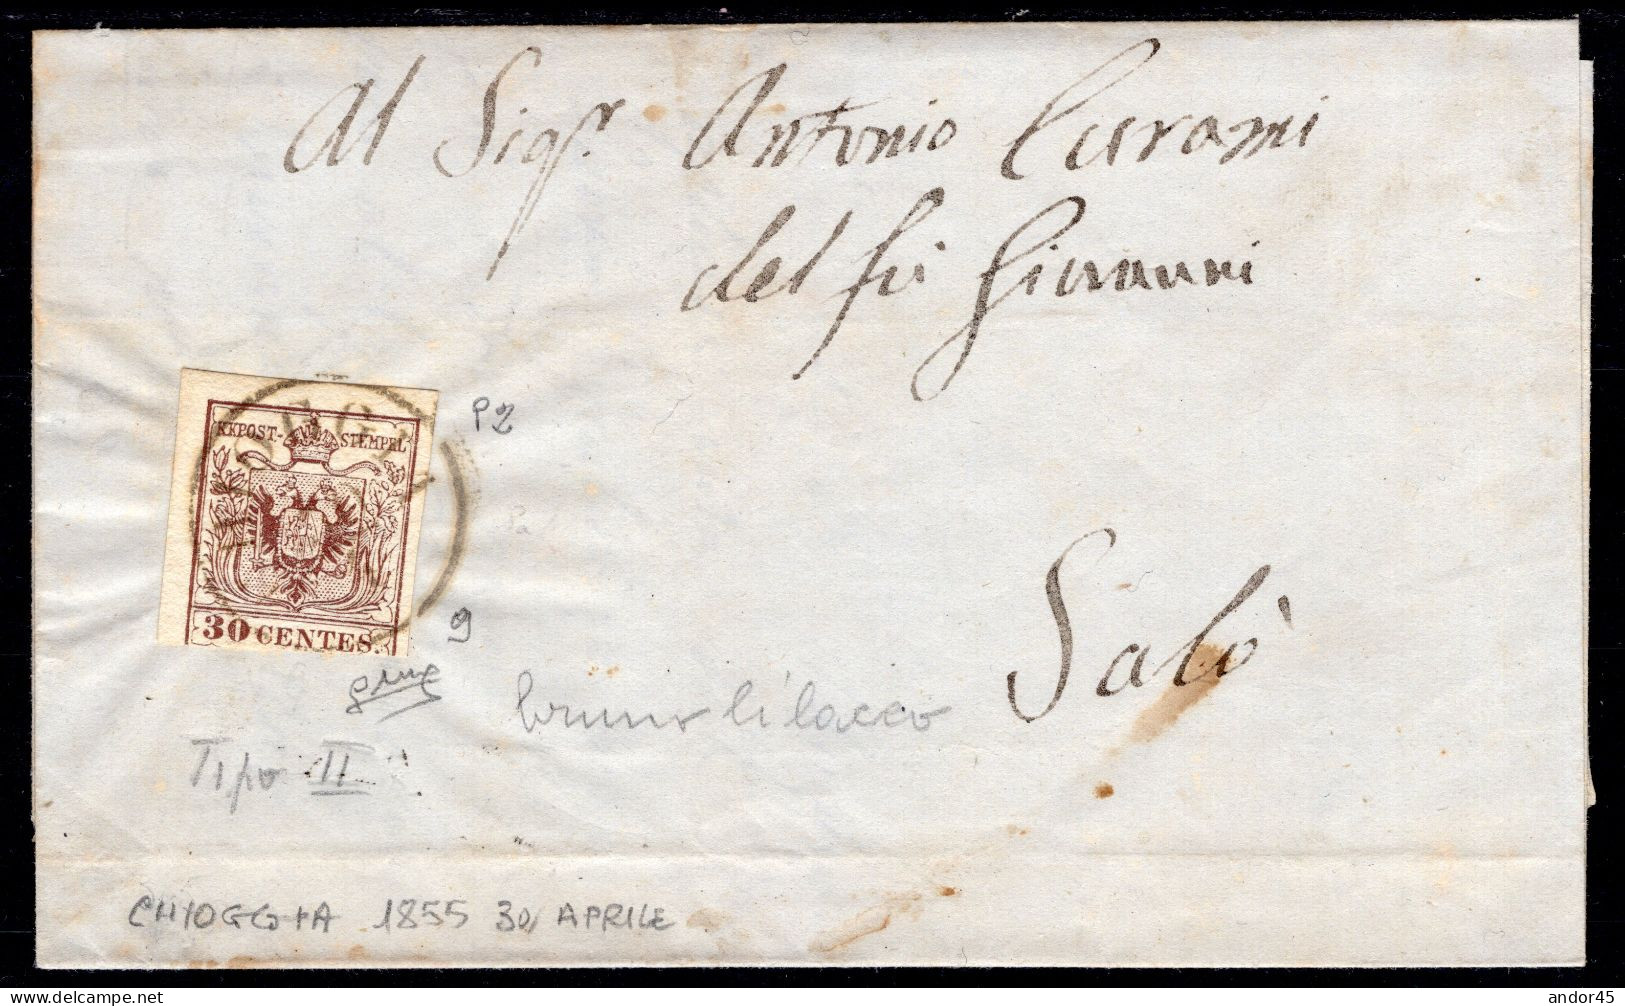 Al Sigr. Antonio Carami
del fù Giovanni
P2
KKPOST-STEMPEL
30 CENTES.
9
Salò
bruno lilacco
Tipo II
CHIOGGIA 1855 30 APRILE
delcampe.net
andor45